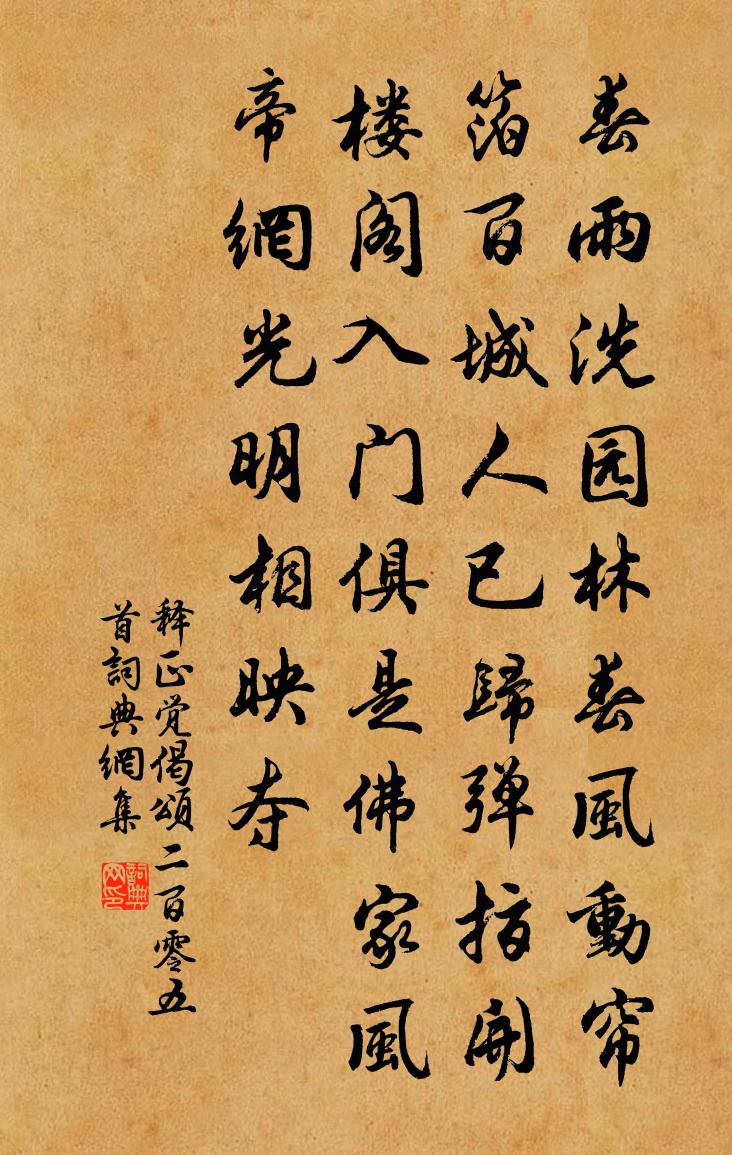 春雨洗园林春風動帘
箔百城人已歸弹指開
楼阁入门俱是佛家風
帝網光明相映夺
释正觉偈頌二百零五
首詞典網集
詞典网印